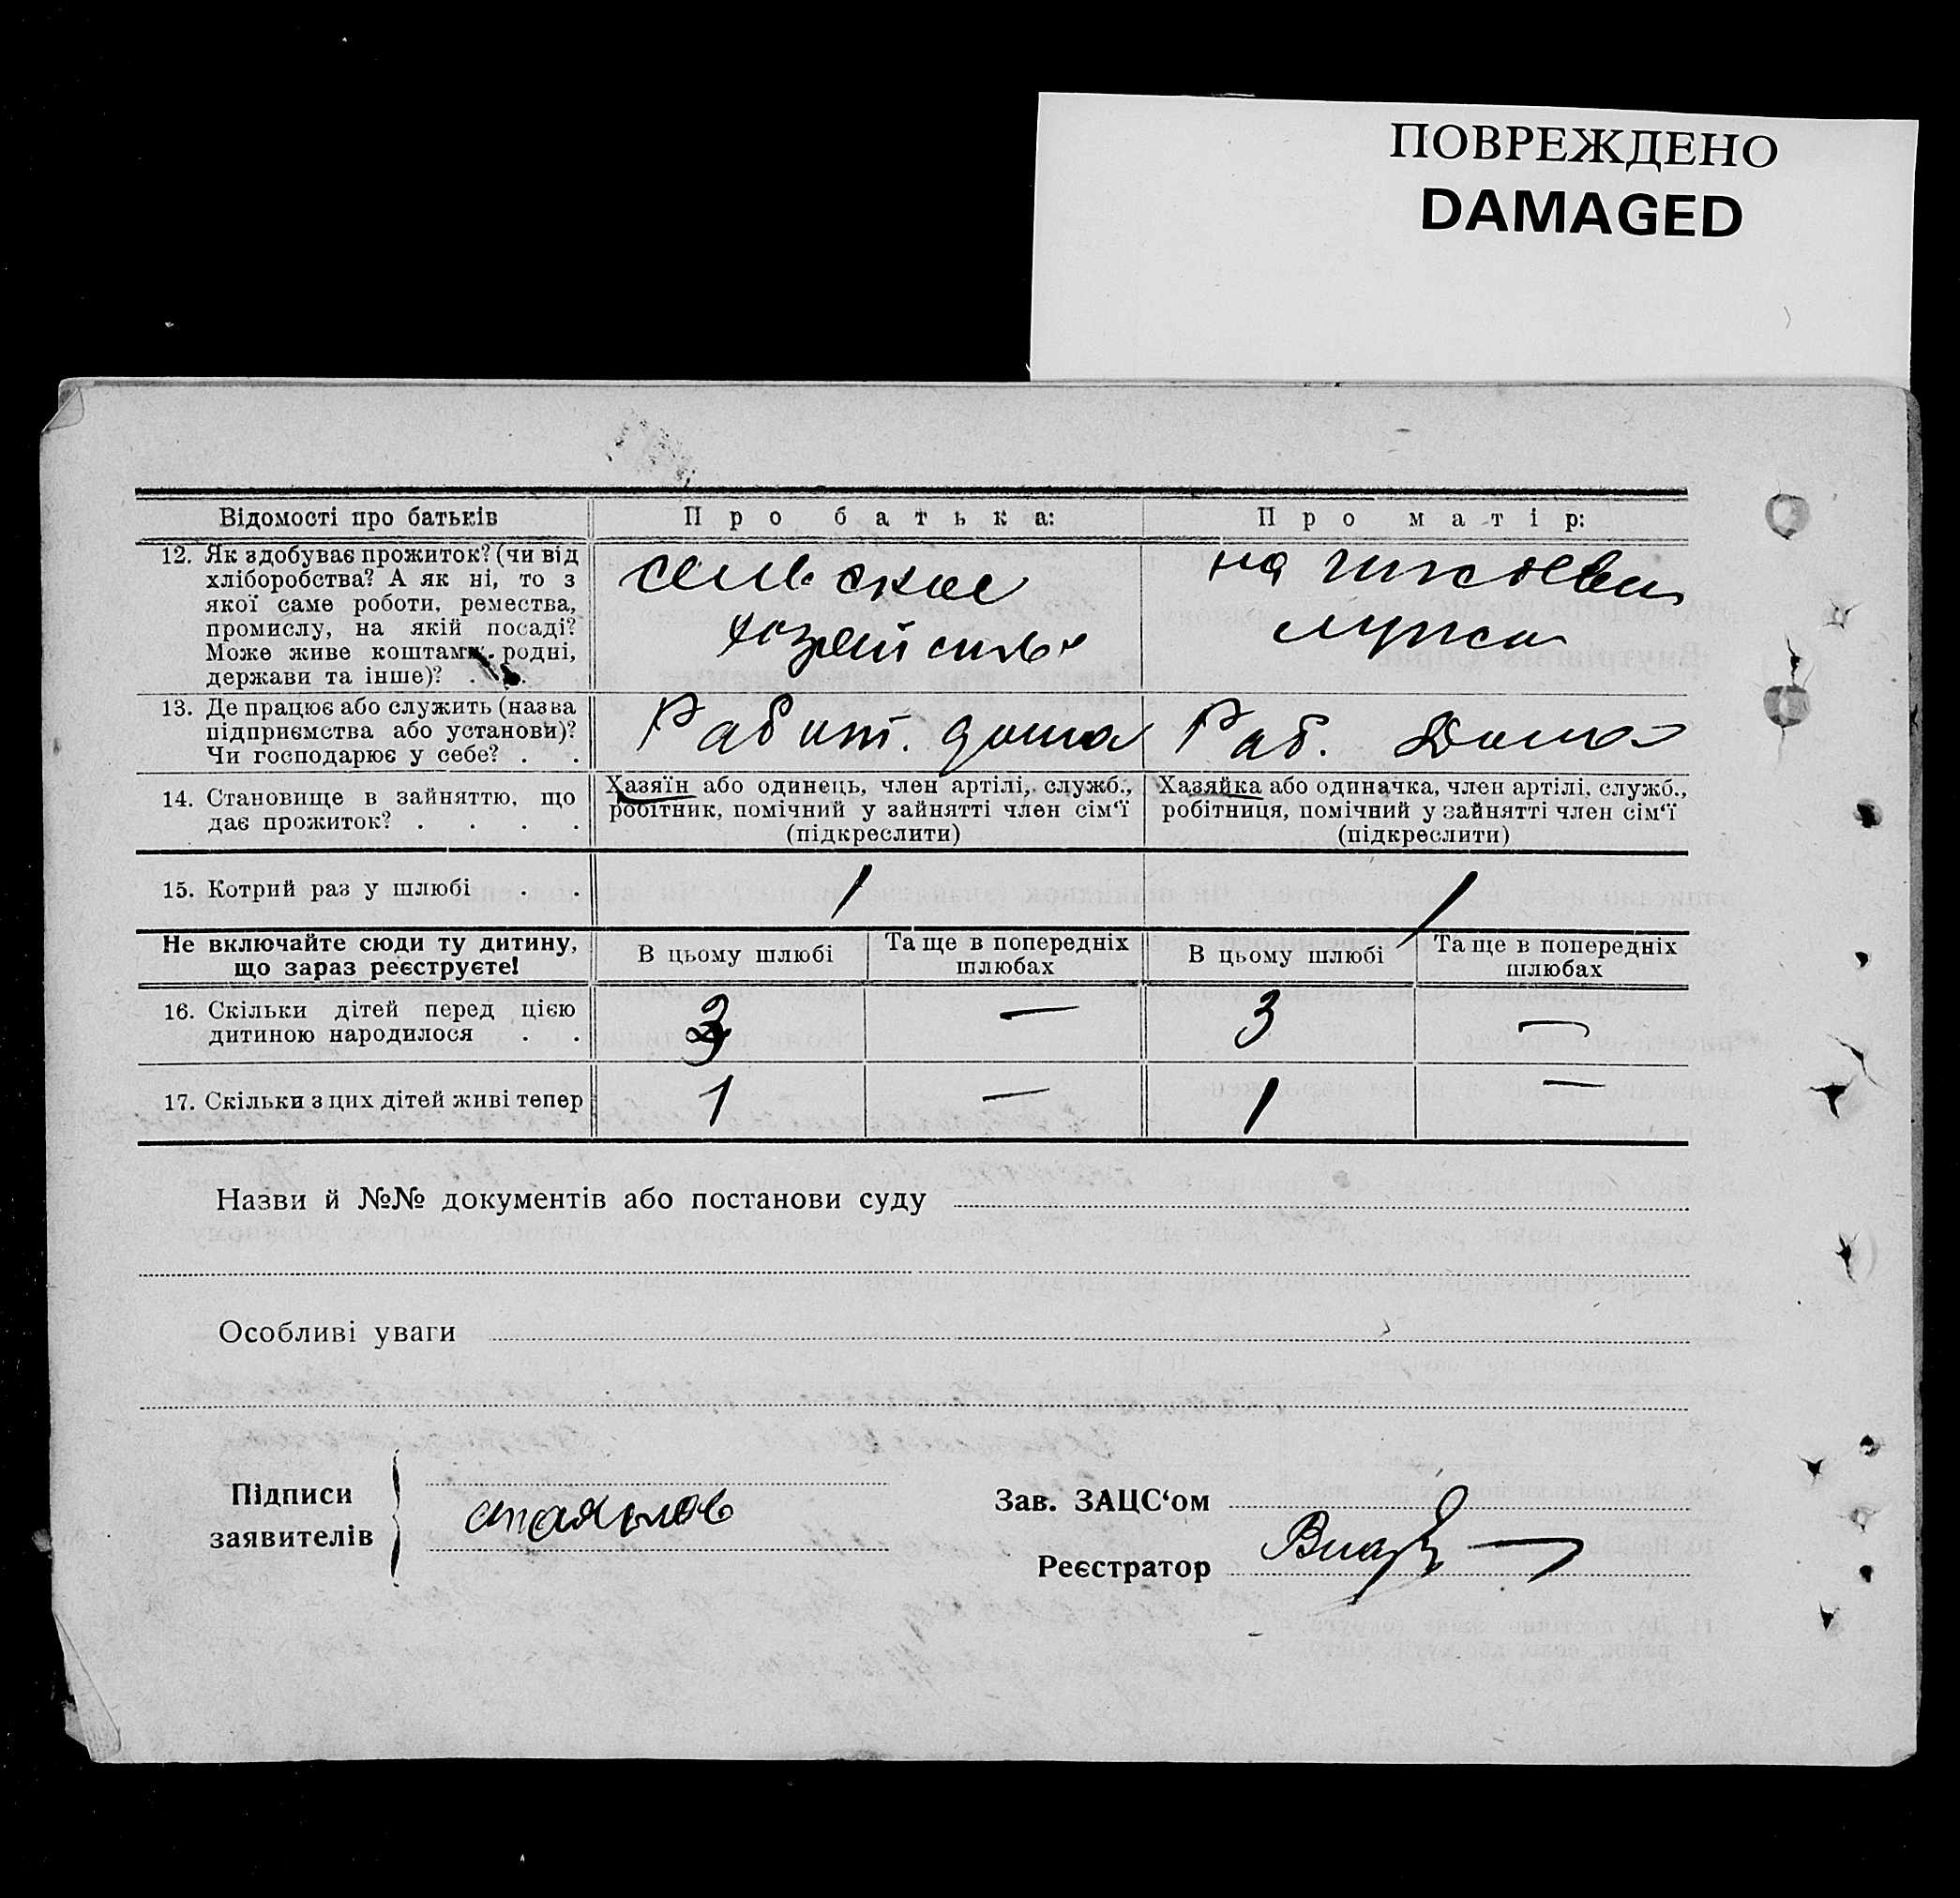 ПОВРЕЖДЕНО
DAMAGED
Відомості про батьків
Про батька:
Про матір:
12. Як здобуває прожиток? (чи від
хліборобства? А як ні, то з
якої саме роботи, ремества,
промислу, на якій посаді?
Може живе коштами родні,
держави та інше)? .
сельское
хозяйство
на
мужа
13. Де працює або служить (назва
підприємства або установи)?
Чи господарює у себе? . .
Работ. дома
Раб. Дома
14. Становище в зайняттю, що
дає прожиток? . . . .
Хазяїн або одинець, член артілі, служб.,
робітник, помічний у зайнятті член сім'ї
(підкреслити)
Хазяйка або одиначка, член артілі, служб.,
робітниця, помічний у зайнятті член сім'ї
(підкреслити)
15. Котрий раз у шлюбі . .
1
1
Не включайте сюди ту дитину,
що зараз реєструєте!
В цьому шлюбі
Та ще в попередніх
шлюбах
В цьому шлюбі
Та ще в попередніх
шлюбах
16. Скільки дітей перед цією
дитиною народилося . .
3
—
3
—
17. Скільки з цих дітей живі тепер
1
—
1
—
Назви й №№ документів або постанови суду
Особливі уваги
Підписи
заявителів
Зав. ЗАЦС'ом
Реєстратор